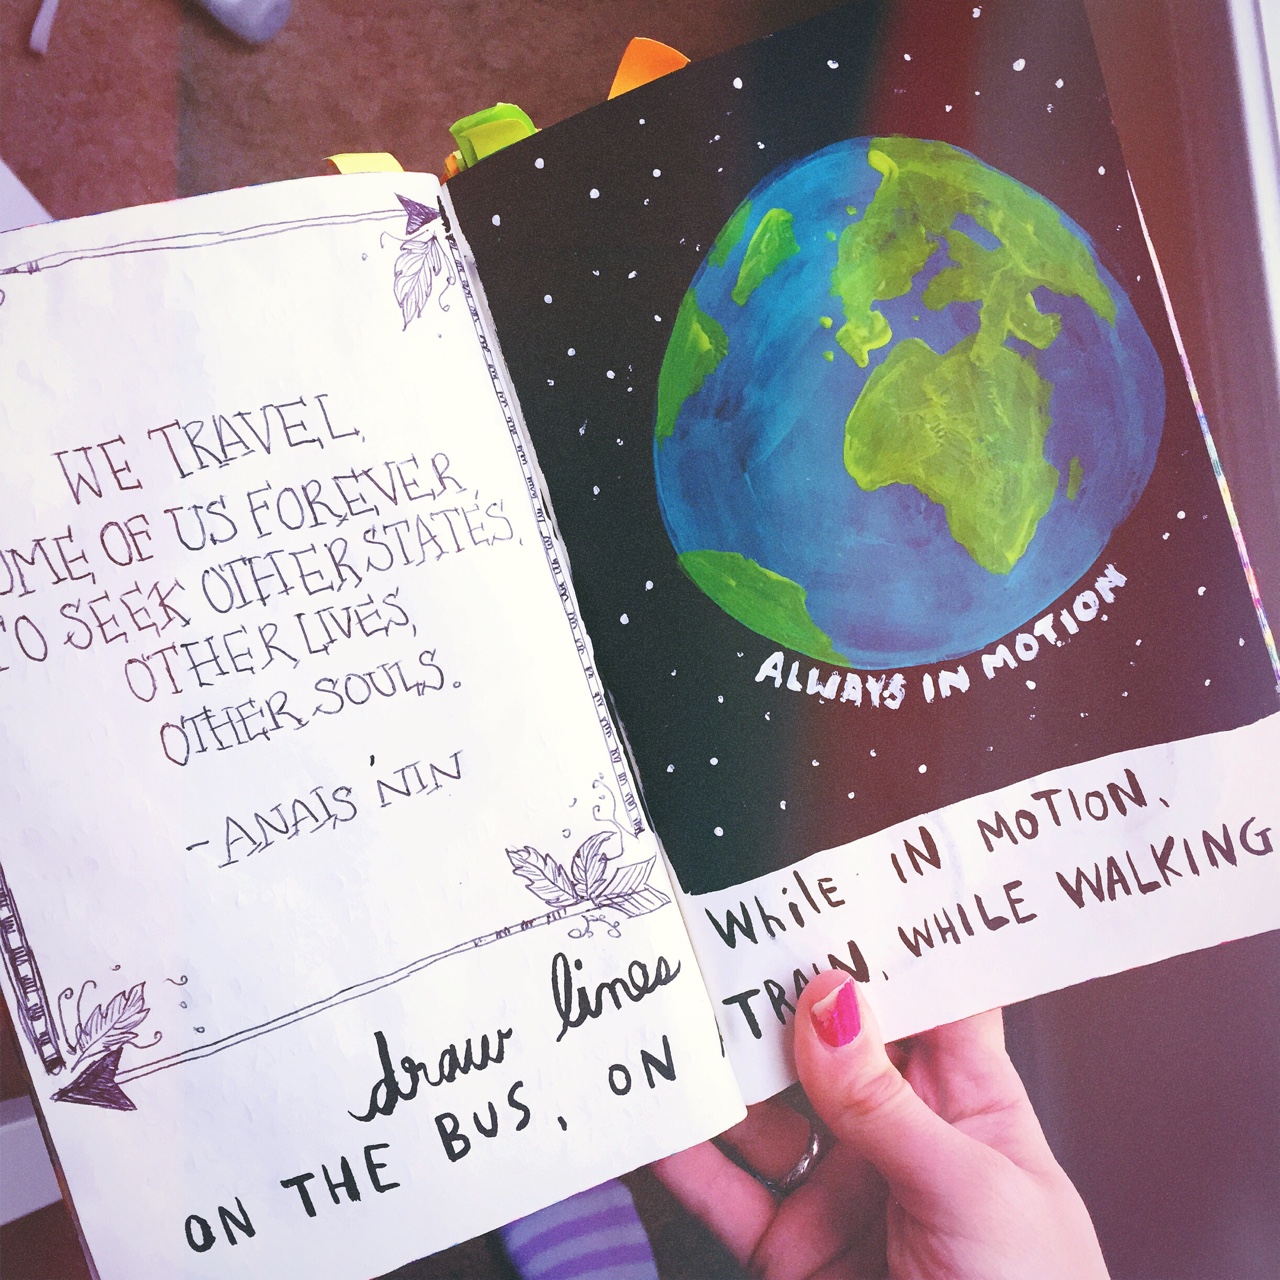 WE TRAVEL,
OME OF US FOREVER,
TO SEEK OTHER STATES,
OTHER LIVES,
OTHER SOULS.
- ANAIS NIN
ALWAYS IN MOTION
draw lines While IN MOTION.
ON THE BUS, ON TRAIN, WHILE WALKING